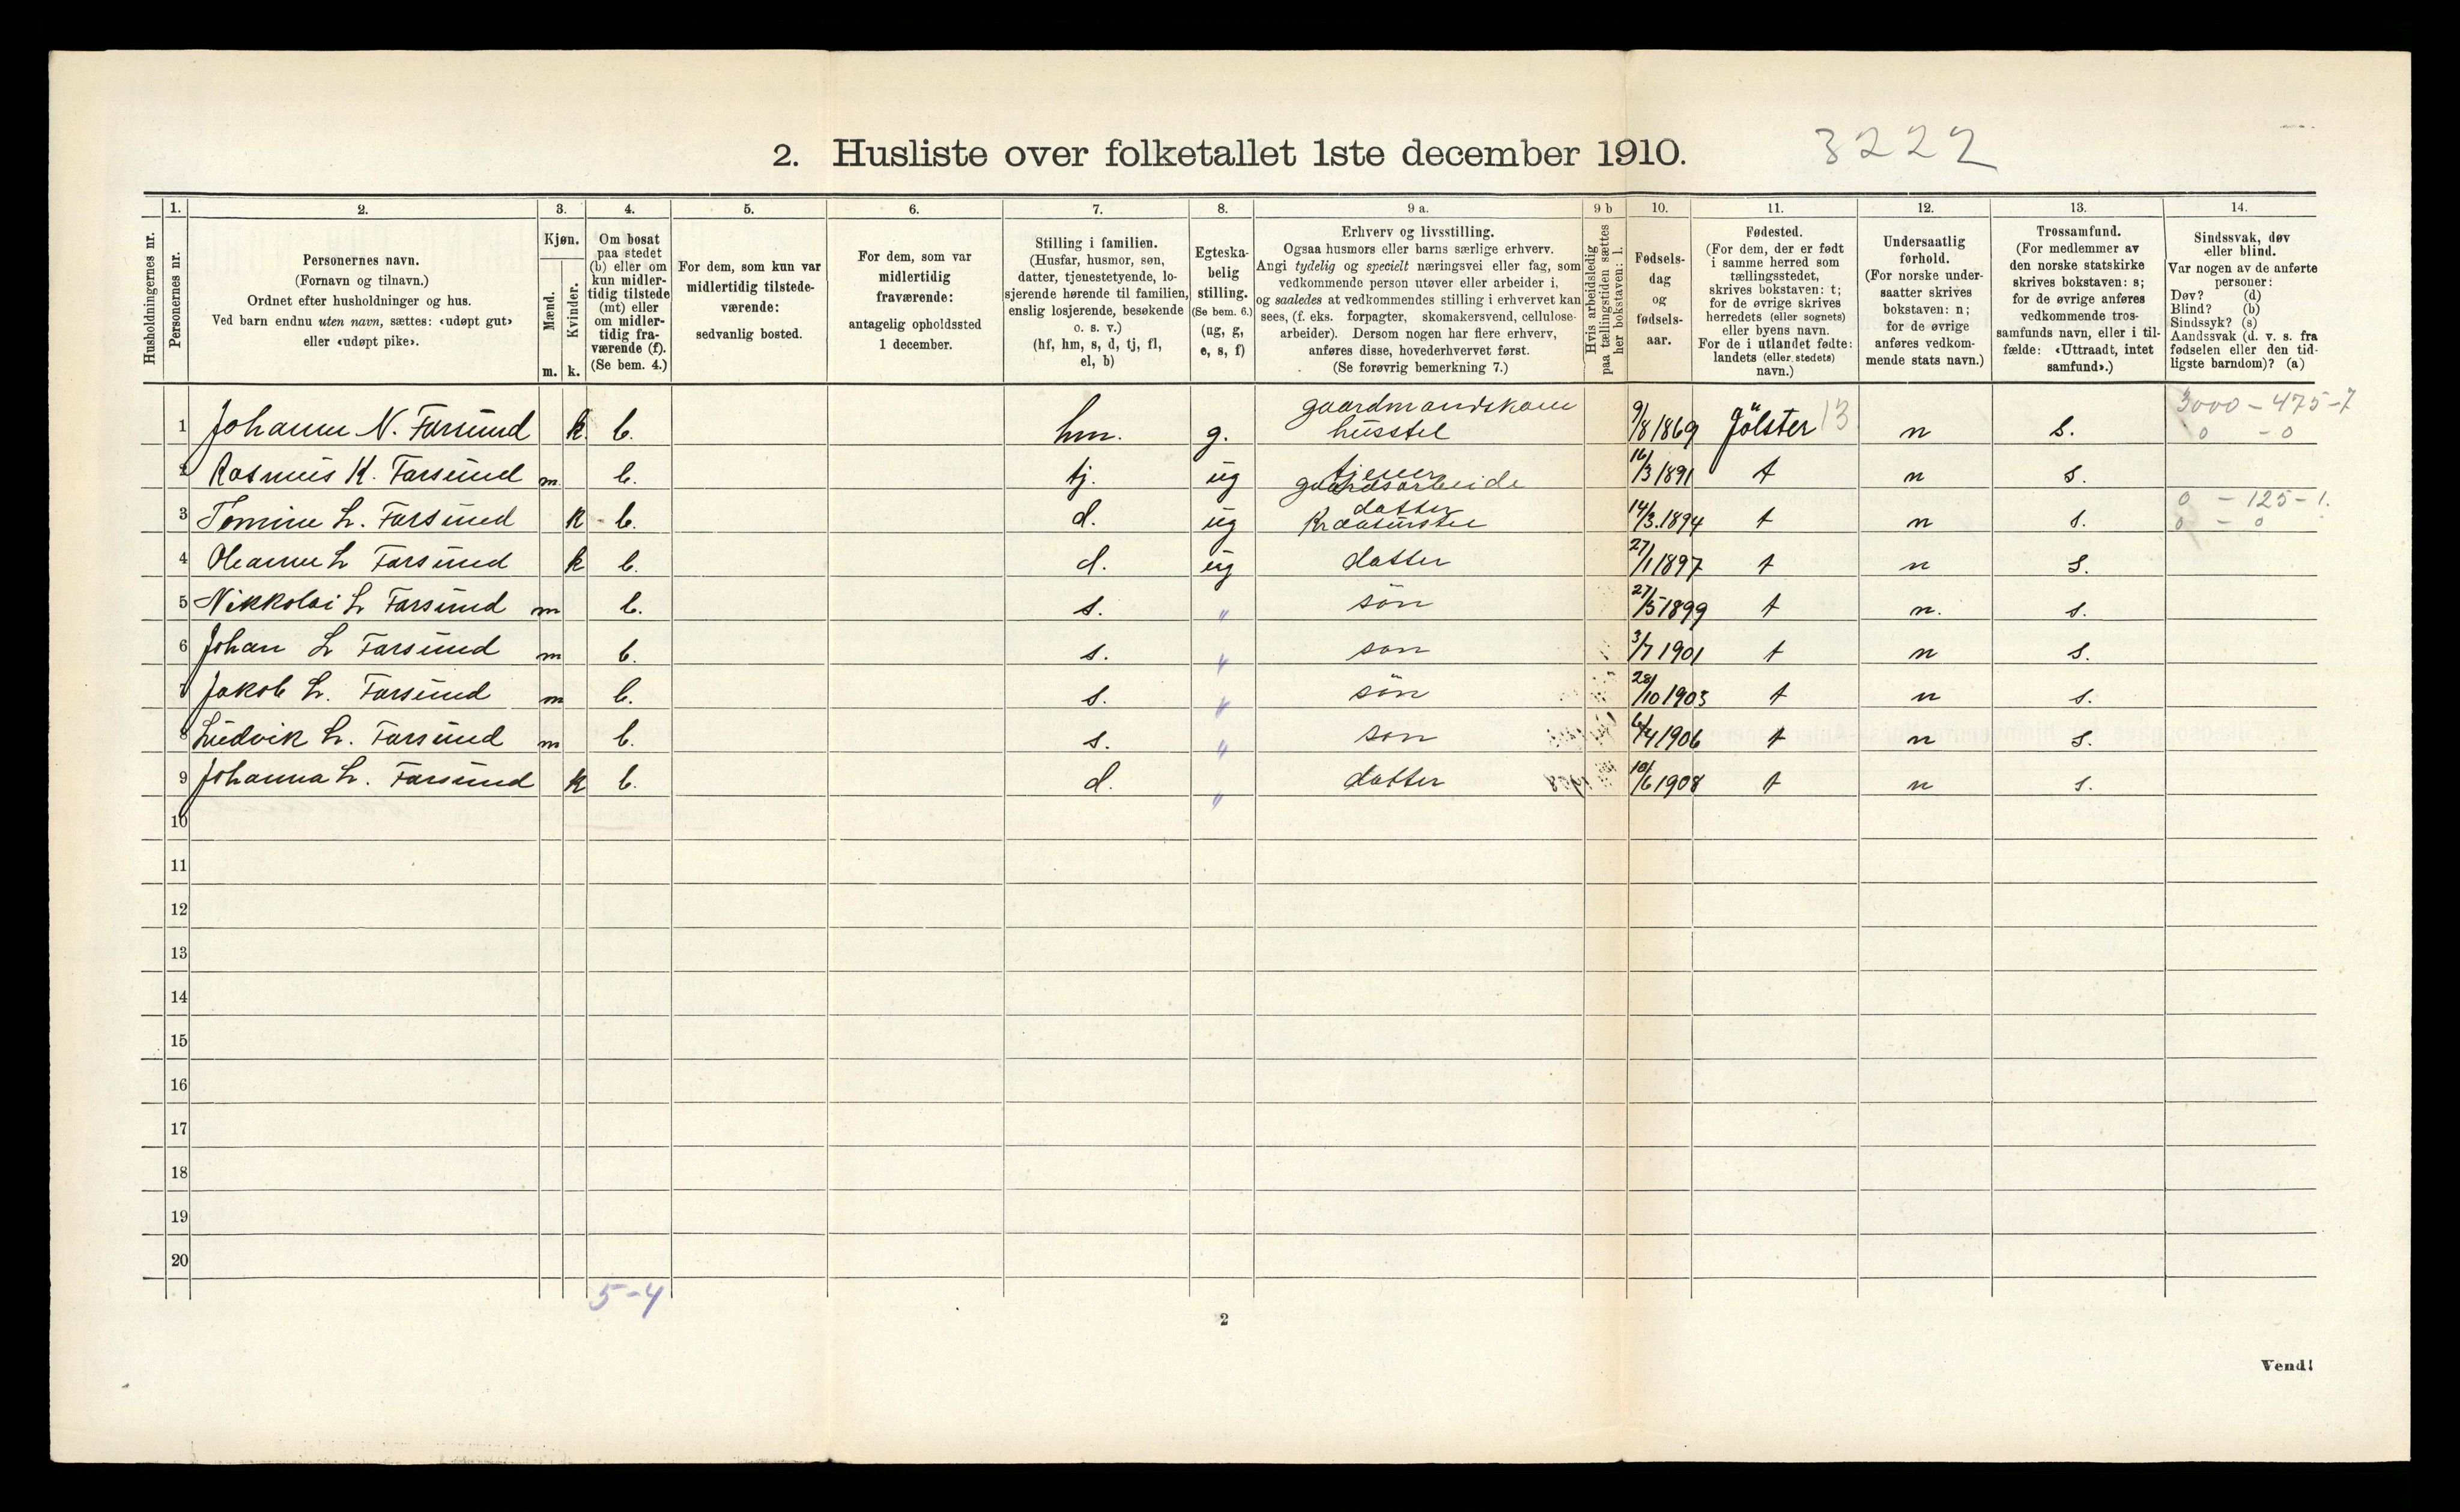 2. Husliste over folketallet 1ste december 1910. 3222
Husholdningernes nr.
1.
Personernes nr.
2.
Personernes navn.
(Fornavn og tilnavn.)
Ordnet efter husholdninger og hus.
Ved barn endnu uten navn, sættes: «udøpt gut»
eller «udøpt pike».
3.
Kjøn.
Mænd.
Kvinder.
m. k.
4.
Om bosat
paa stedet
(b) eller om
kun midler-
tidig tilstede
(mt) eller
om midler-
tidig fra-
værende (f).
(Se bem. 4.)
5.
For dem, som kun var
midlertidig tilstede-
værende:
sedvanlig bosted.
6.
For dem, som var
midlertidig
fraværende:
antagelig opholdssted
1 december.
7.
Stilling i familien.
(Husfar, husmor, søn,
datter, tjenestetyende, lo-
sjerende hørende til familien,
enslig losjerende, besøkende
o. s. v.)
(hf, hm, s, d, tj, fl,
el, b)
8.
Egteska-
belig
stilling.
(Se bem. 6.)
(ug, g,
e, s, f)
9 a.
Erhverv og livsstilling.
Ogsaa husmors eller barns særlige erhverv.
Angi tydelig og specielt næringsvei eller fag, som
vedkommende person utøver eller arbeider i,
og saaledes at vedkommendes stilling i erhvervet kan
sees, (f. eks. forpagter, skomakersvend, cellulose-
arbeider). Dersom nogen har flere erhverv,
anføres disse, hovederhvervet først.
(Se forøvrig bemerkning 7.)
9 b
Hvis arbeidsledig
paa tællingstiden sættes
her bokstaven: l.
10.
Fødsels-
dag
og
fødsels-
aar.
11.
Fødested.
(For dem, der er født
i samme herred som
tællingsstedet,
skrives bokstaven: t;
for de øvrige skrives
herredets (eller sognets)
eller byens navn.
For de i utlandet fødte:
landets (eller stedets)
navn.)
12.
Undersaatlig
forhold.
(For norske under-
saatter skrives
bokstaven: n;
for de øvrige
anføres vedkom-
mende stats navn.)
13.
Trossamfund.
(For medlemmer av
den norske statskirke
skrives bokstaven: s;
for de øvrige anføres
vedkommende tros-
samfunds navn, eller i til-
fælde: «Uttraadt, intet
samfund».)
14.
Sindssvak, døv
eller blind.
Var nogen av de anførte
personer:
Døv? (d)
Blind? (b)
Sindssyk? (s)
Aandssvak (d. v. s. fra
fødselen eller den tid-
ligste barndom)? (a)
gaardmandskone 3000 - 475 - 7
1 Johanne N. Farsund k. b. hm. g. husstel 9/8 1869 Jölster 13 n s. 0 - 0
tjener
2 Rasmus K. Farsund m b. tj. ug gaardsarbeide 16/3 1891 t n s.
datter 0 - 125 - 1.
3 Tomine L. Farsund k b. d. ug Kreaturstel 14/3. 1894 t n s. 0 - 0
4 Oleanne L Farsund k b. d. ug datter 27/1 1897 t n s.
5 Nikkolai L Farsund m b. s. " sön 27/5 1899 t n. s.
6 Johan L Farsund m b. s. " son 3/7 1901 t n s.
7 Jakob L. Farsund m b. s. " sön 28/10 1903 t n s.
8 Ludvik L. Farsund m b. s. " son 6/4 1906 t n s.
9 Johanna L. Farsund k b. d. " datter 10/6 1908 t n s.
10
11
12
13
14
15
16
17
18
19
20
5-4
2
Vend!